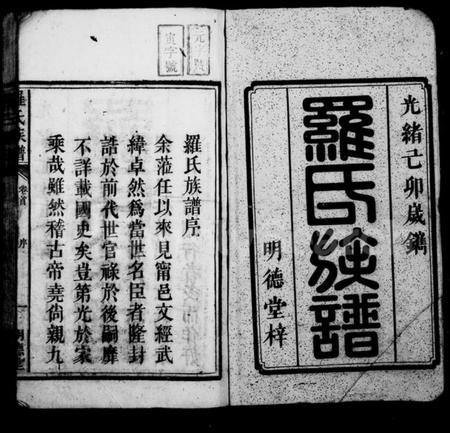 光緒己卯歲鐫
羅氏族譜
明德堂梓
元字號
羅氏族譜序
余蒞任以來見甯邑文經武
緯卓然為當世名臣者隆封
誥於前代世官祿於後嗣靡
不詳載國史矣豈第光於家
乘哉雖然稽古帝堯尚親九
羅氏族譜
卷首
序